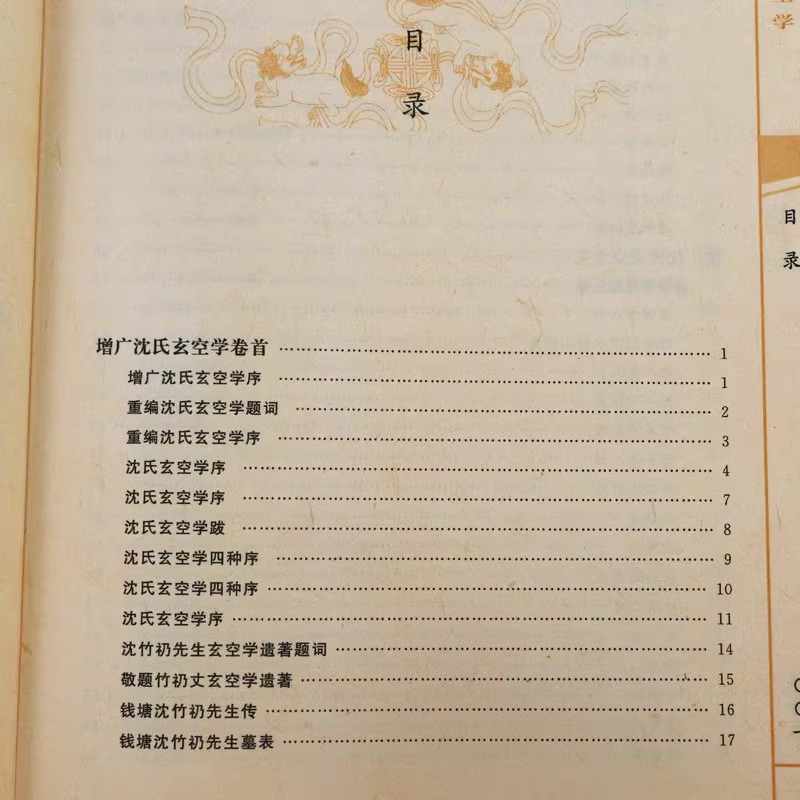 目
录
增广沈氏玄空学卷首 …… 1
增广沈氏玄空学序 …… 1
重编沈氏玄空学题词 …… 2
重编沈氏玄空学序 …… 3
沈氏玄空学序 …… 4
沈氏玄空学序 …… 7
沈氏玄空学跋 …… 8
沈氏玄空学四种序 …… 9
沈氏玄空学四种序 …… 10
沈氏玄空学序 …… 11
沈竹礽先生玄空学遗著题词 …… 14
敬题竹礽丈玄空学遗著 …… 15
钱塘沈竹礽先生传 …… 16
钱塘沈竹礽先生墓表 …… 17
学
目
录